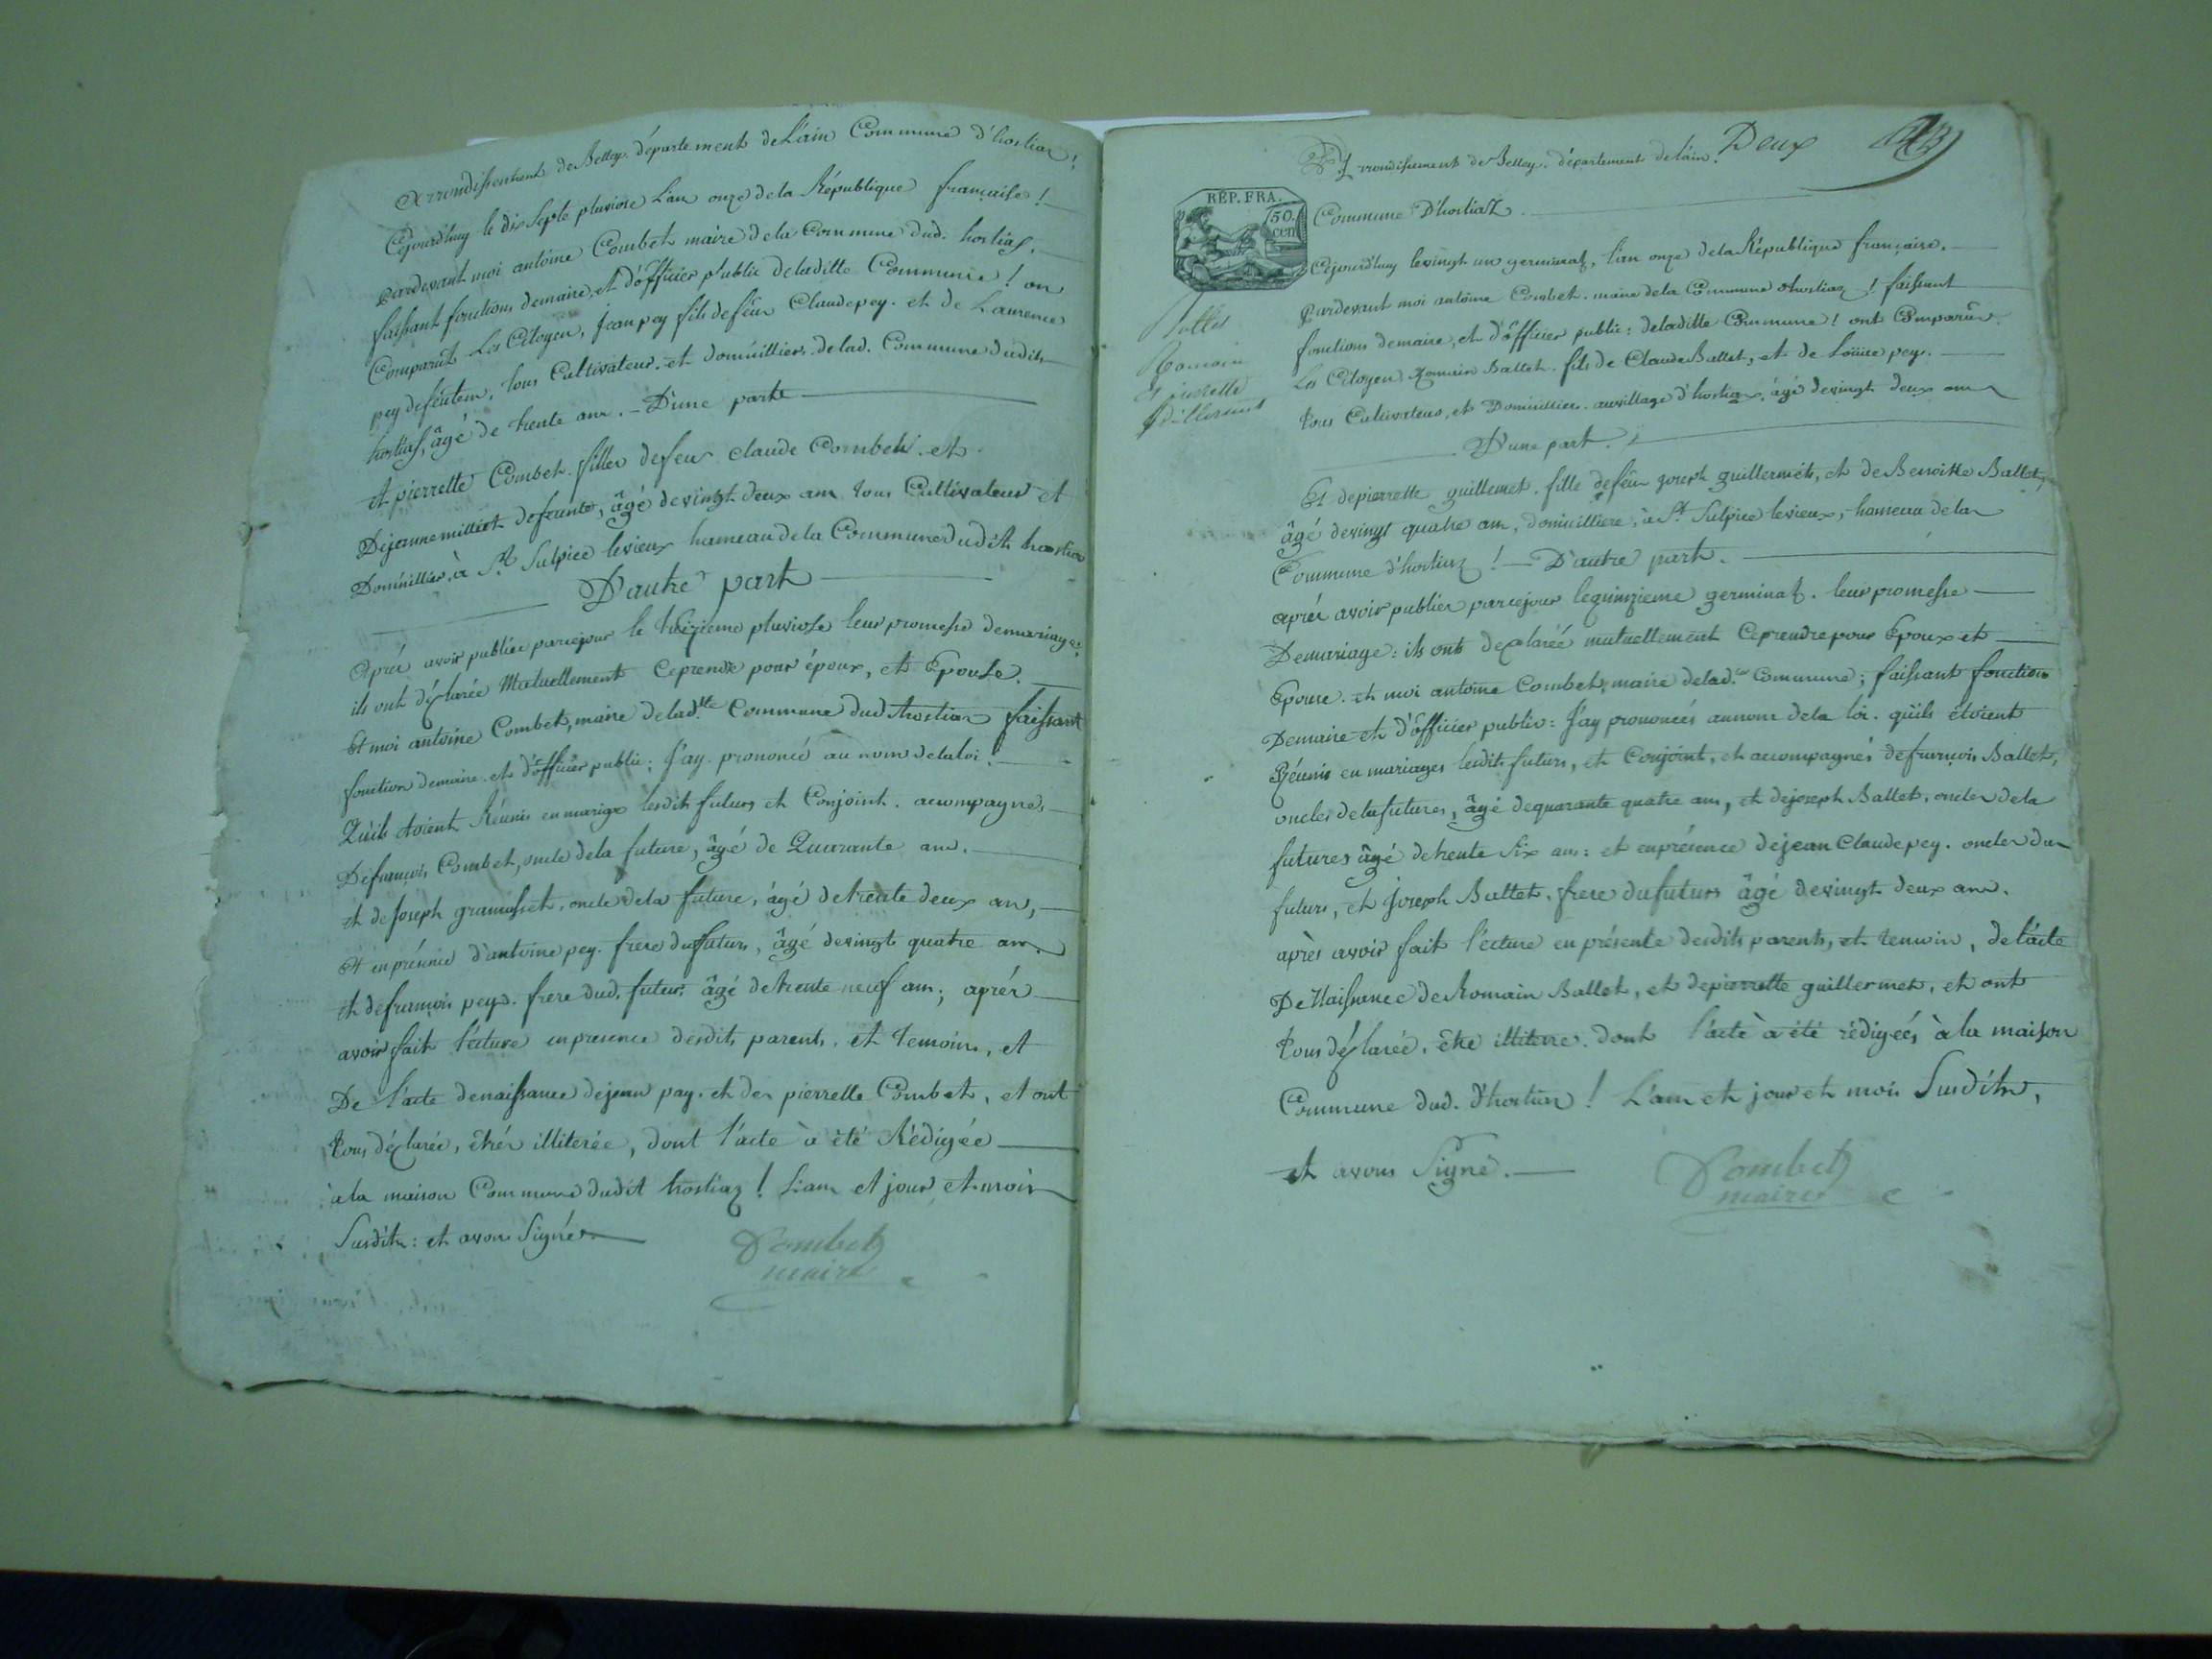 Arrondissement de Belley. département de L'ain Commune d'hostiaz !
Cejourd'huy le dix Septe pluviose L'an onze de la République française !
Pardevant moi antoine Combet maire de la Commune dud. hostiaz,
faissant fonctions de maire, et d'officier public de laditte Commune ! on
Comparut Les Citoyen, Jean pey fils de feu Claude pey. et de Laurence
pey defeuten, tous Cultivateur. et domicilliers de lad. Commune dudit
hostiaz, âgé de trente ans. - D'une parte
et pierrette Combet. filles de feu Claude Combet. et
De jeanne milliet defeunte, âgé de vingt deux ans tous Cultivateur et
Domicillier, à St Sulpice levieux hameau de la Commune dudit hostiaz
D'autre part
Aprés avoir publiée par cejour le treizieme pluviose leur promesse demariage
ils ont déclarée Mutuellement Ceprendre pour époux, et Epouse.
Et moi antoine Combet, maire de lad.tte Commune dud hostiaz faissant
fonction demaire. et d'officier public; J'ay. prononcé au nom delaloi.
Qu'ils étoient Réunis en mariage lesdit futurs et Conjoint. accompagnés
De françois Combet, oncle dela future, âgé de Quarante ans.
et de Joseph gramusset, oncle dela future, âgé de trente deux ans,
et en présence d'antoine pey. frere du futurs, âgé de vingt quatre ans.
et de françois pey. frere dud. futur. âgé de trente neuf ans; aprés
avoir fait l'ecture en presence desdits parents, et temoins, et
De l'acte denaissance de jean pay. et de pierrette Combet, et ont
tous déclarée, être illiterée, dont l'acte à été Rédigée
à la maison Commune dudit hostiaz ! L'an et jour et mois
Susdits: et avons Signés
Combet
maire
Deux
Arrondissement de Belley. département de l'ain.
RÉP. FRA.
50.
cen
Commune D'hostiaz
Cejourd'huy levingt un germinal, l'an onze dela République française.
Pardevant moi antoine Combet. maire dela Commune d'hostiaz ! faissant
fonctions demaire, et d'officier public: deladitte Commune ! ont Comparut
Les Citoyen Romain Ballet. fils de Claude Ballet, et de Louise pey.
tous Cultivateur, et Domicillier. auvillage d'hostiaz, âgé devingt deux ans
D'une part.
Ballet
Romain
et pierrette
Et depierrette guillemet. fille defeu joseph guillermet, et de Benoitte Ballet,
âgé devingt quatre ans, domicilliere, à St. Sulpice levieux, hameau dela
Commune d'hostiaz ! - D'autre part.
aprés avoir publiér parcejour lequinzieme germinal. leur promesse
Demariage: ils ont déclarée mutuellement Ceprendre pour Epoux et
Epouse. et moi antoine Combet, maire delad.tte Commune; faissant fonction
Demaire et d'officier public: J'ay prononcés aunom dela loi. qu'ils étoient
Réunis en mariages lesdits futurs, et Conjoint, et accompagnés defrançois Ballet,
oncles delafutures, âgé dequarante quatre ans, et dejoseph Ballet. oncles dela
futures âgé detrente Six ans: et en présence dejean Claude pey. oncles du
futurs, et joseph Ballet. frere dufuturs âgé devingt deux ans.
après avoir fait l'ecture en présente desdits parents, et temoin, de l'acte
De Naissance de Romain Ballet, et depierrette guillermet, et ont
tous déclarée, être illiterre. dont l'acte à été rédigées à la maison
Commune dud. d'hostiaz ! L'an et jour et mois Susdits,
et avons Signé.
Combet
maire